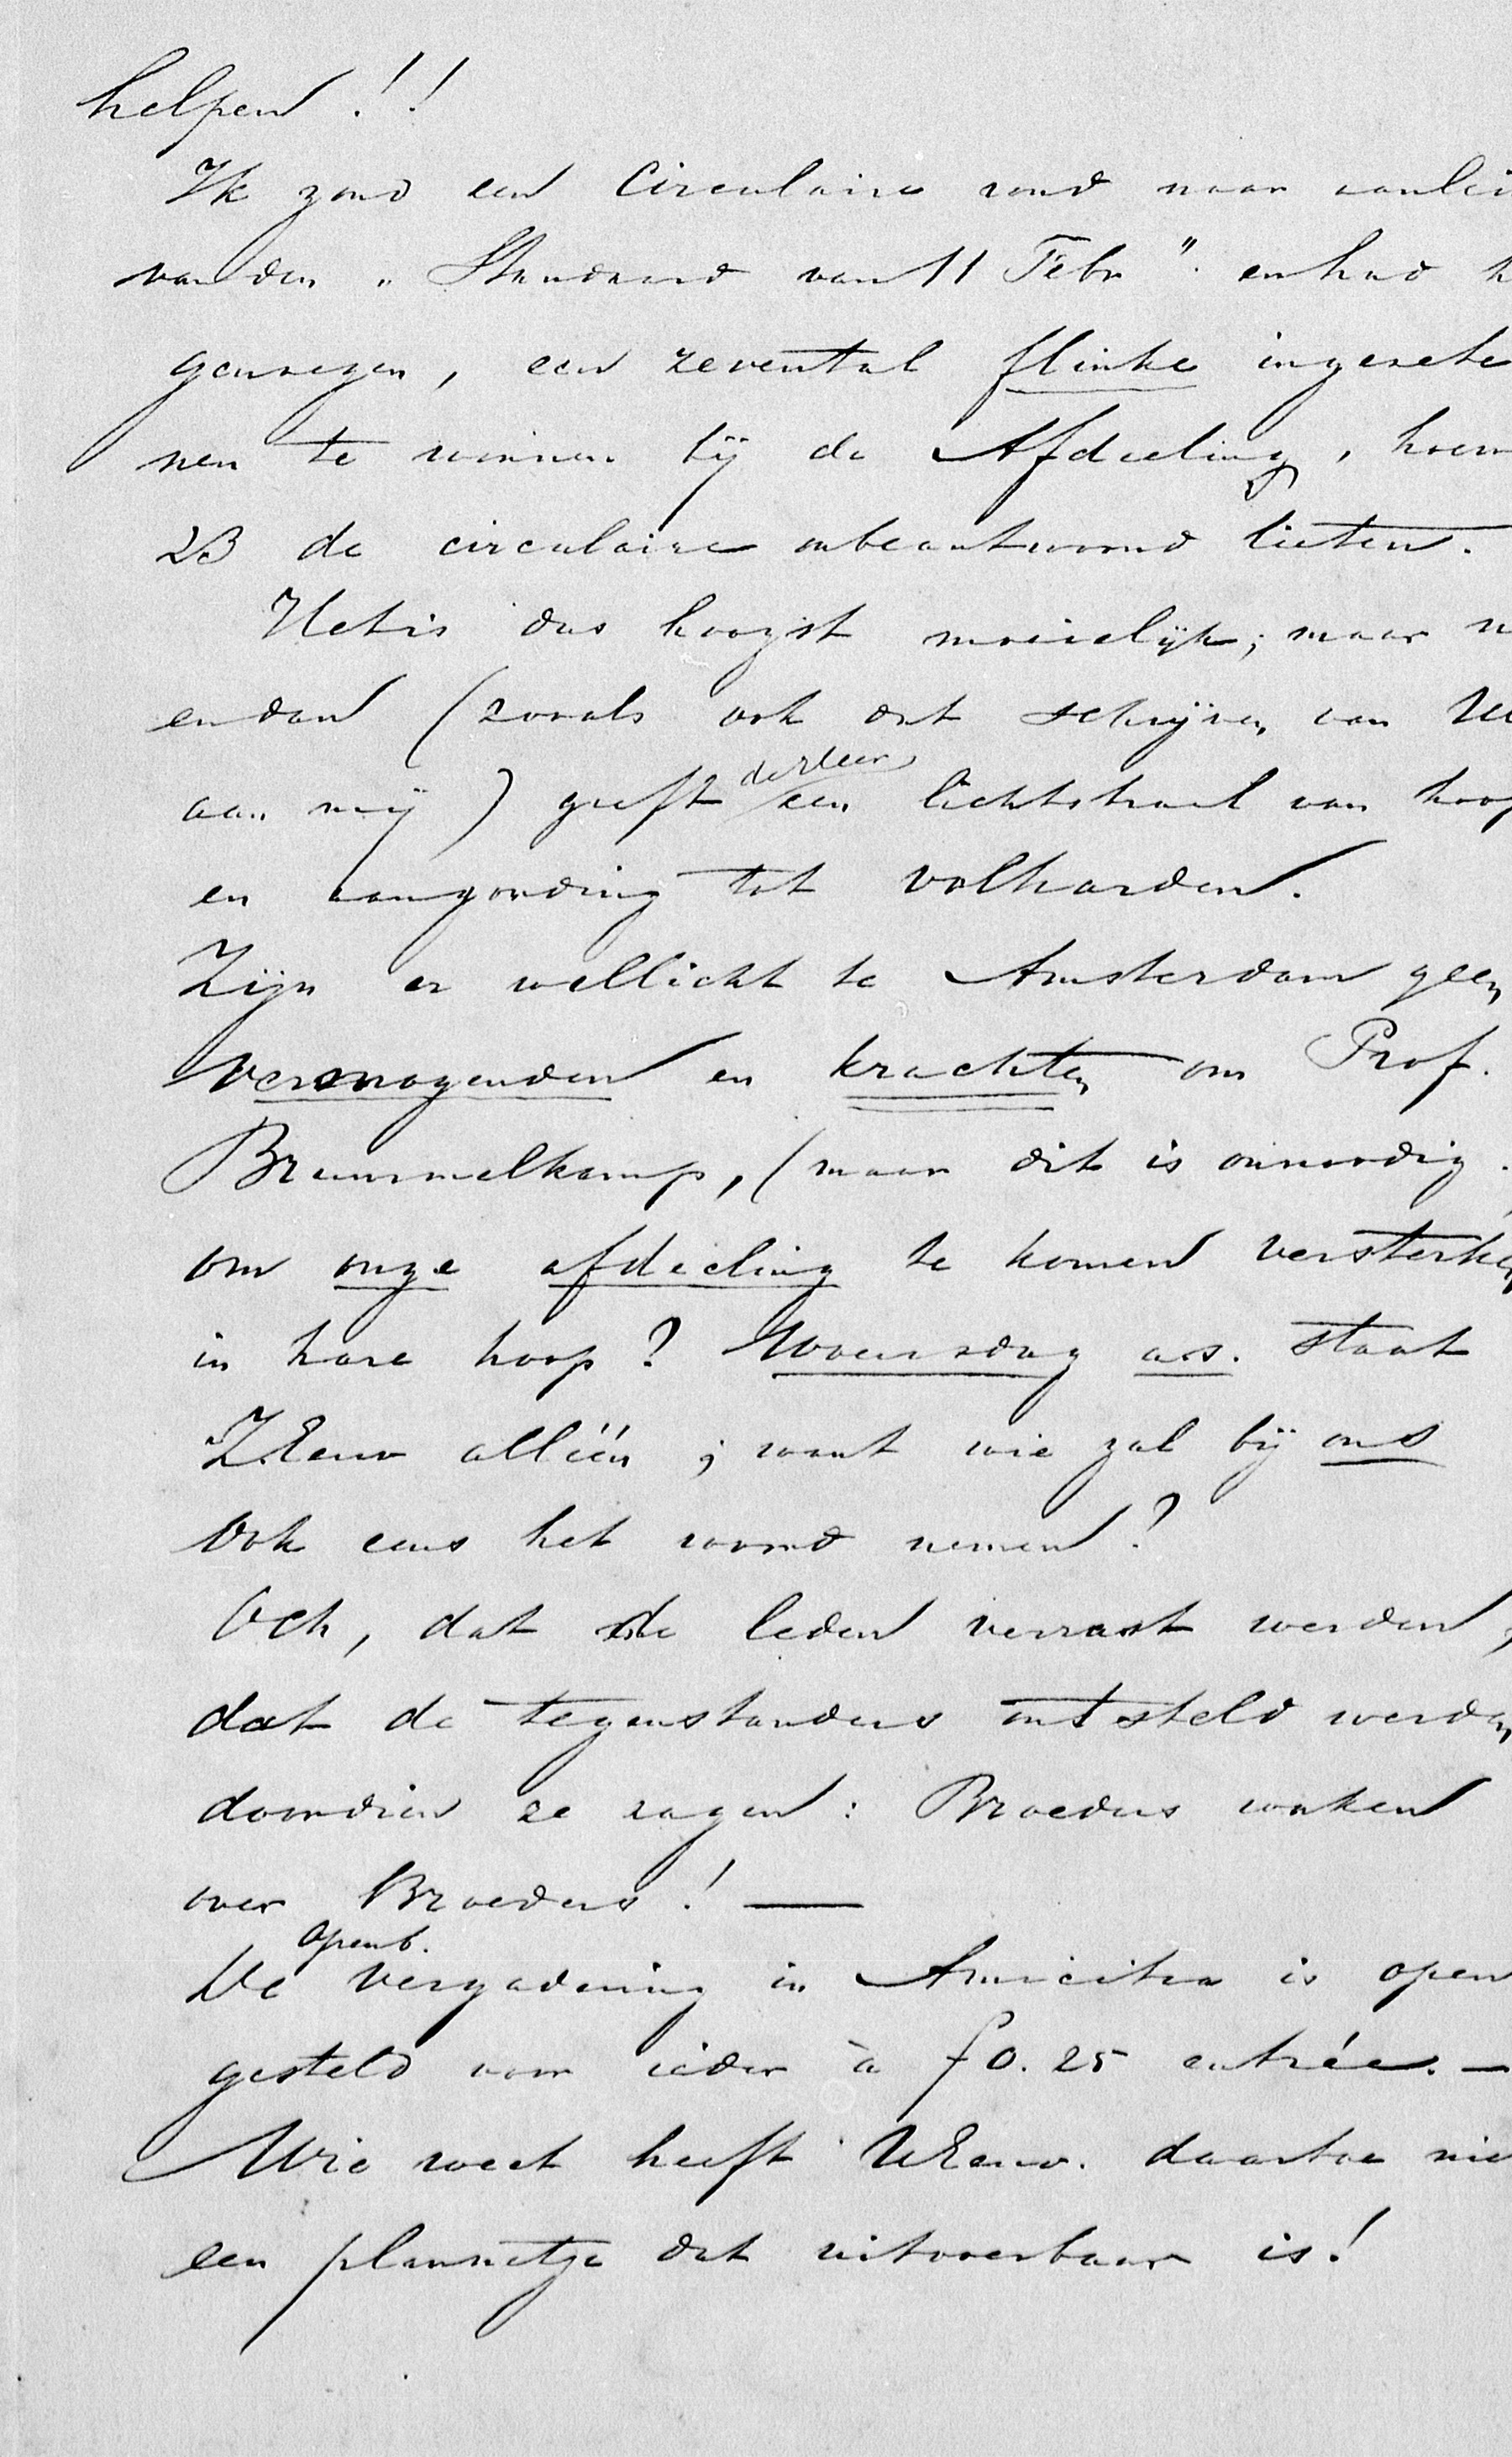 helpen!!
Ik zond een Circulaire rond naar aanlei
van den „Standaard van 11 Febr". en had h
genoegen, een zevental flinke ingezete
nen te winnen bij de Afdeeling, hoew
23 de circulaire onbeantwoord lieten.
Het is dus hoogst moeielijk; maar n
en dan (zooals ook dat schrijven van U
aan mij) geeft de Heer een lichtstraal van hoop
en aangording tot volharden.
Zijn er wellicht te Amsterdam geen
vermogenden en krachten om Prof.
Brummelkamp, (maar dit is onnoodig.
om onze afdeeling te komen versterken
in hare hoop? Woensdag a.s. staat
ZEenw alléén; want wie zal bij ons
ook eens het woord nemen?
Och, dat de leden verrast werden,
dat de tegenstanders ontsteld werden
doordien ze zagen: Broeders waken
over Broeders! —
De openb. vergadering in Amicitia is open
gesteld voor ieder à f 0.25 entrée. —
Wie weet heeft UEenw. daartoe nie
een plannetje dat uitvoerbaar is!